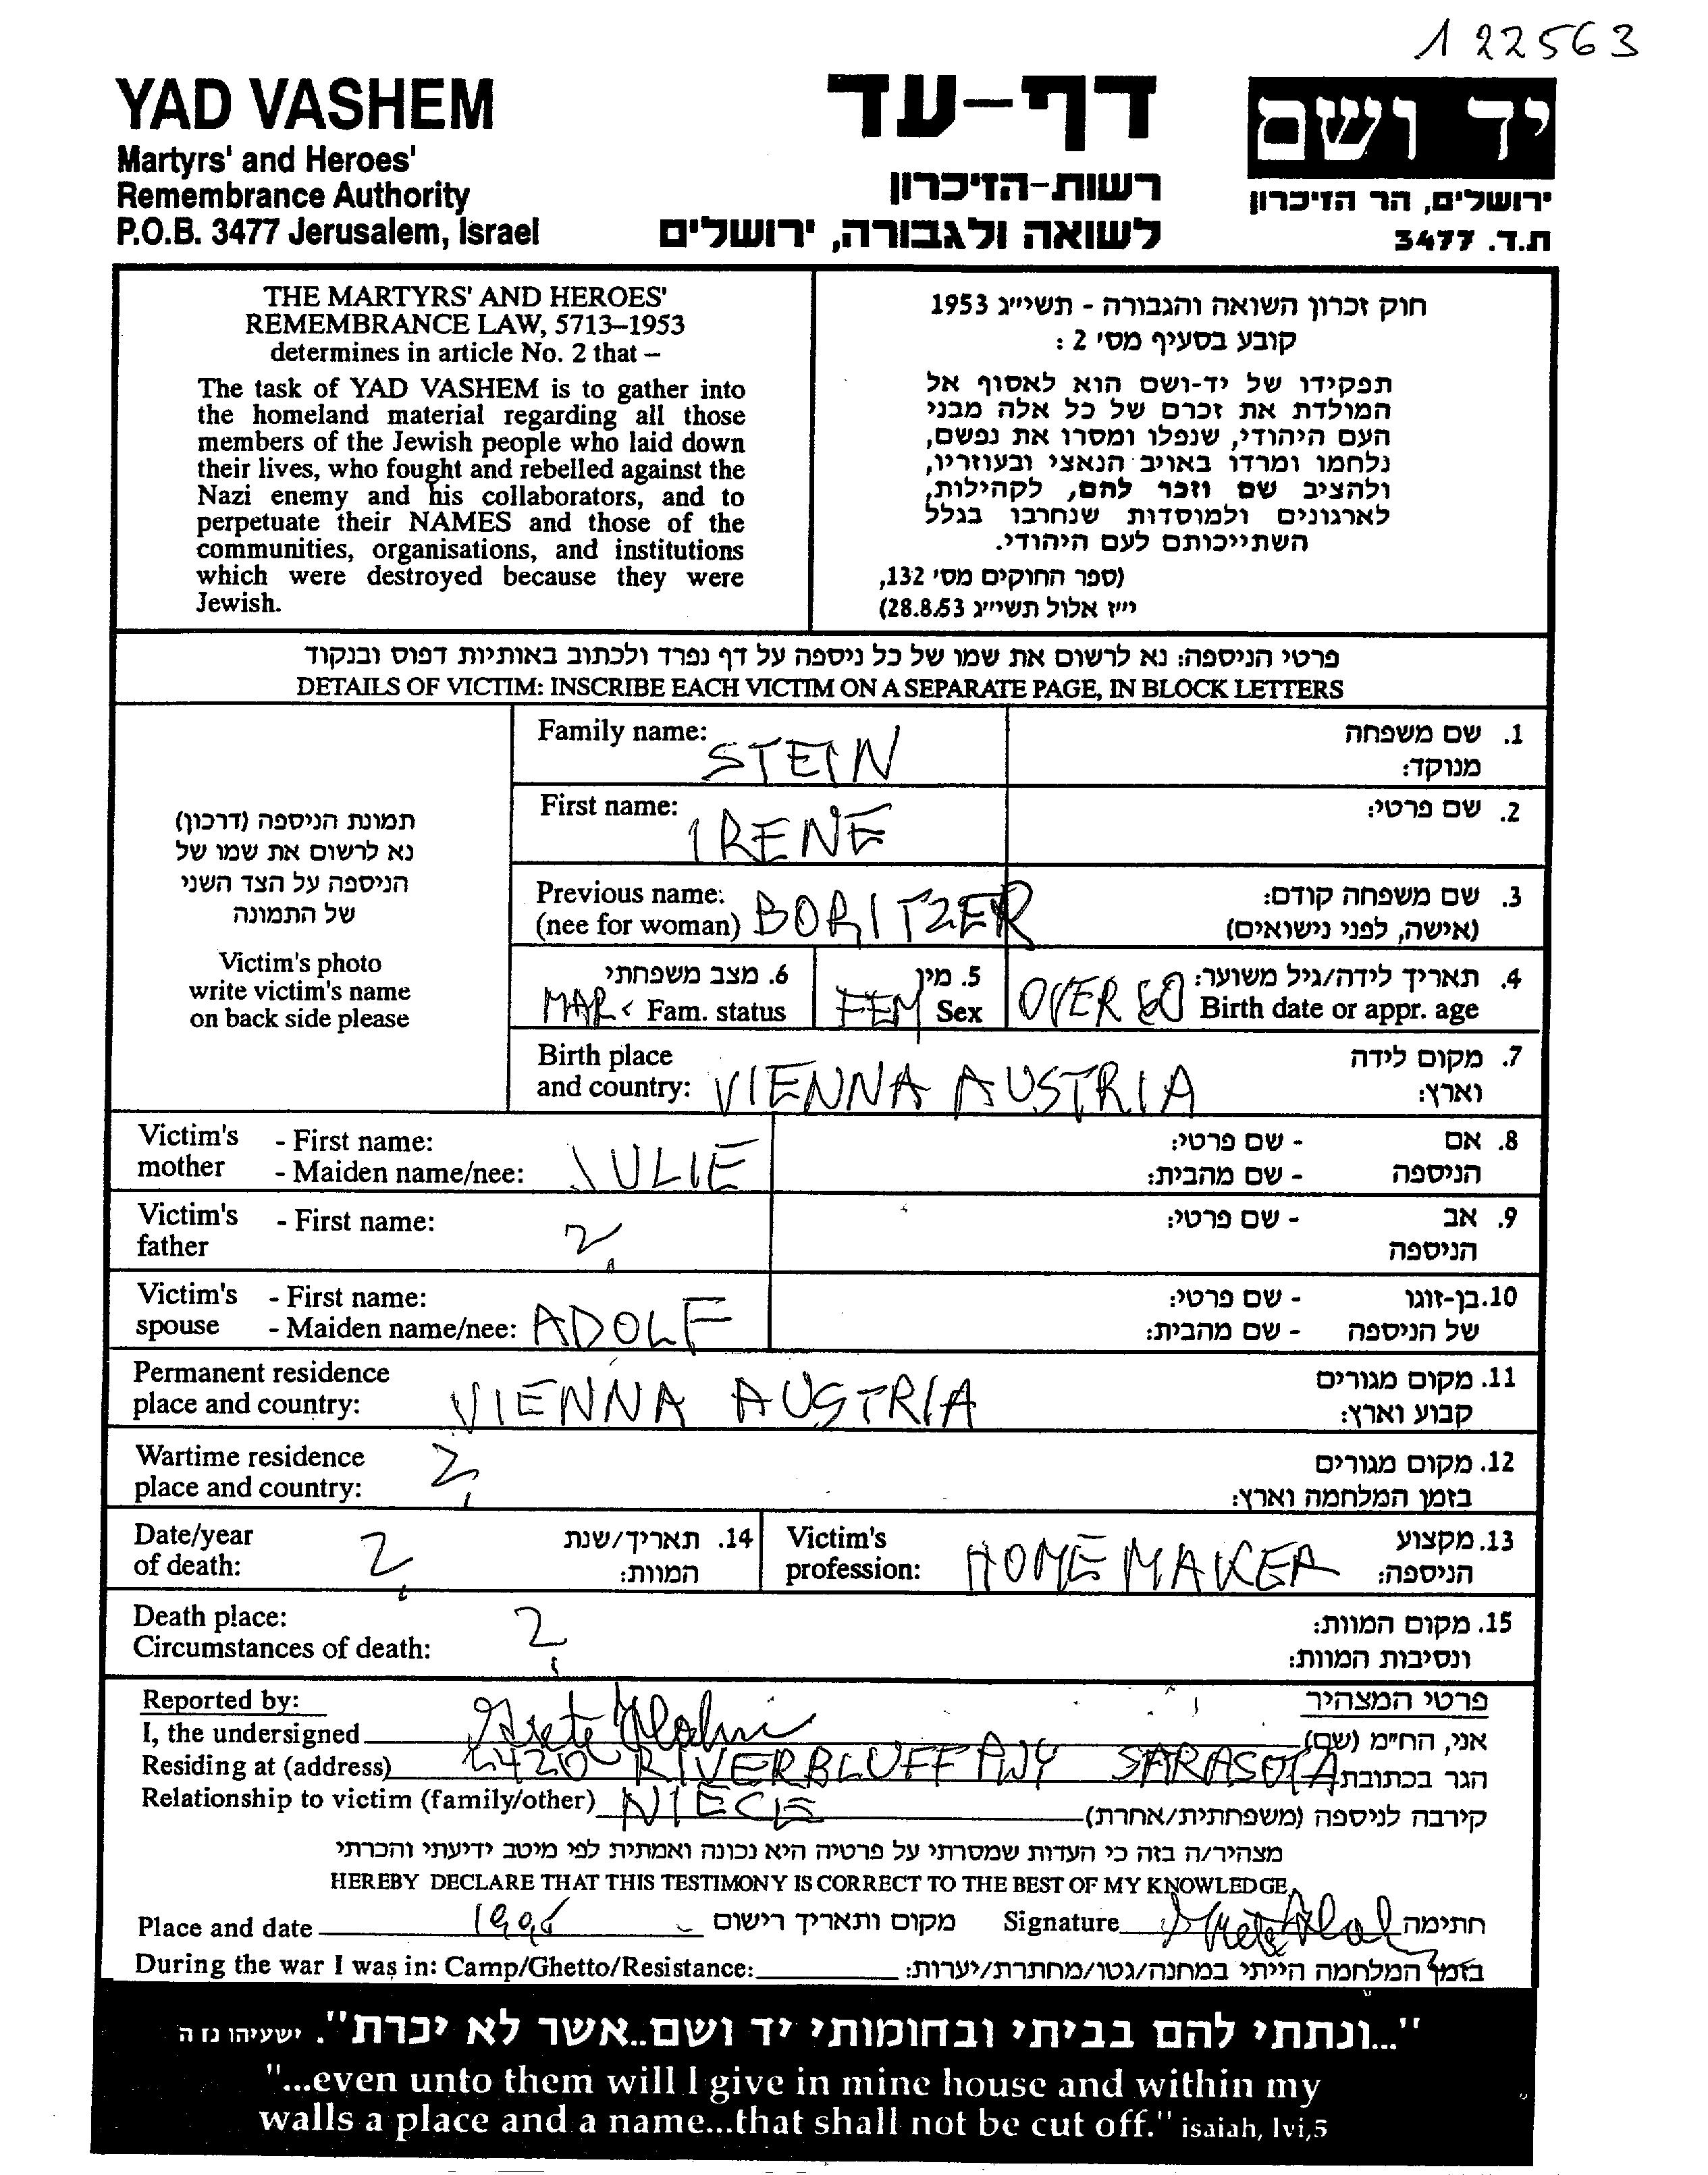 122563
YAD VASHEM
Martyrs' and Heroes'
Remembrance Authority
P.O.B. 3477 Jerusalem, Israel
דף-עד
רשות-הזיכרון
לשואה ולגבורה, ירושלים
יד ושם
ירושלים, הר הזיכרון
ת.ד. 3477
THE MARTYRS' AND HEROES'
REMEMBRANCE LAW, 5713–1953
determines in article No. 2 that –
The task of YAD VASHEM is to gather into
the homeland material regarding all those
members of the Jewish people who laid down
their lives, who fought and rebelled against the
Nazi enemy and his collaborators, and to
perpetuate their NAMES and those of the
communities, organisations, and institutions
which were destroyed because they were
Jewish.
חוק זכרון השואה והגבורה - תשי״ג 1953
קובע בסעיף מס׳ 2 :
תפקידו של יד-ושם הוא לאסוף אל
המולדת את זכרם של כל אלה מבני
העם היהודי, שנפלו ומסרו את נפשם,
נלחמו ומרדו באויב הנאצי ובעוזריו,
ולהציב שם וזכר להם, לקהילות,
לארגונים ולמוסדות שנחרבו בגלל
השתייכותם לעם היהודי.
(ספר החוקים מס׳ 132,
י״ז אלול תשי״ג 28.8.53)
פרטי הניספה: נא לרשום את שמו של כל ניספה על דף נפרד ולכתוב באותיות דפוס ובנקוד
DETAILS OF VICTIM: INSCRIBE EACH VICTIM ON A SEPARATE PAGE, IN BLOCK LETTERS
תמונת הניספה (דרכון)
נא לרשום את שמו של
הניספה על הצד השני
של התמונה
Victim's photo
write victim's name
on back side please
Family name: STEIN 1. שם משפחה
מנוקד:
First name: IRENE 2. שם פרטי:
Previous name: BORITZER 3. שם משפחה קודם:
(nee for woman) (אישה, לפני נישואים)
6. מצב משפחתי 5. מין 4. תאריך לידה/גיל משוער:
MAR. Fam. status FEM Sex OVER 60 Birth date or appr. age
Birth place 7. מקום לידה
and country: VIENNA AUSTRIA וארץ:
Victim's - First name: - שם פרטי: 8. אם
mother - Maiden name/nee: JULIE - שם מהבית: הניספה
Victim's - First name: ? - שם פרטי: 9. אב
father הניספה
Victim's - First name: - שם פרטי: 10. בן-זוגו
spouse - Maiden name/nee: ADOLF - שם מהבית: של הניספה
Permanent residence 11. מקום מגורים
place and country: VIENNA AUSTRIA קבוע וארץ:
Wartime residence ? 12. מקום מגורים
place and country: בזמן המלחמה וארץ:
Date/year ? 14. תאריך/שנת Victim's HOMEMAKER 13. מקצוע
of death: המוות: profession: הניספה:
Death place: ? 15. מקום המוות:
Circumstances of death: ונסיבות המוות:
Reported by: פרטי המצהיר
I, the undersigned Grete אני, הח״מ (שם)
Residing at (address) 4420 RIVERBLUFF SARASOTA הגר בכתובת
Relationship to victim (family/other) NIECE קירבה לניספה (משפחתית/אחרת)
מצהיר/ה בזה כי העדות שמסרתי על פרטיה היא נכונה ואמתית לפי מיטב ידיעתי והכרתי
HEREBY DECLARE THAT THIS TESTIMONY IS CORRECT TO THE BEST OF MY KNOWLEDGE
Place and date מקום ותאריך רישום Signature Grete חתימה
During the war I was in: Camp/Ghetto/Resistance: בזמן המלחמה הייתי במחנה/גטו/מחתרת/יערות:
"...ונתתי להם בביתי ובחומותי יד ושם..אשר לא יכרת". ישעיהו נז ה
"...even unto them will I give in mine house and within my
walls a place and a name...that shall not be cut off." isaiah, lvi,5